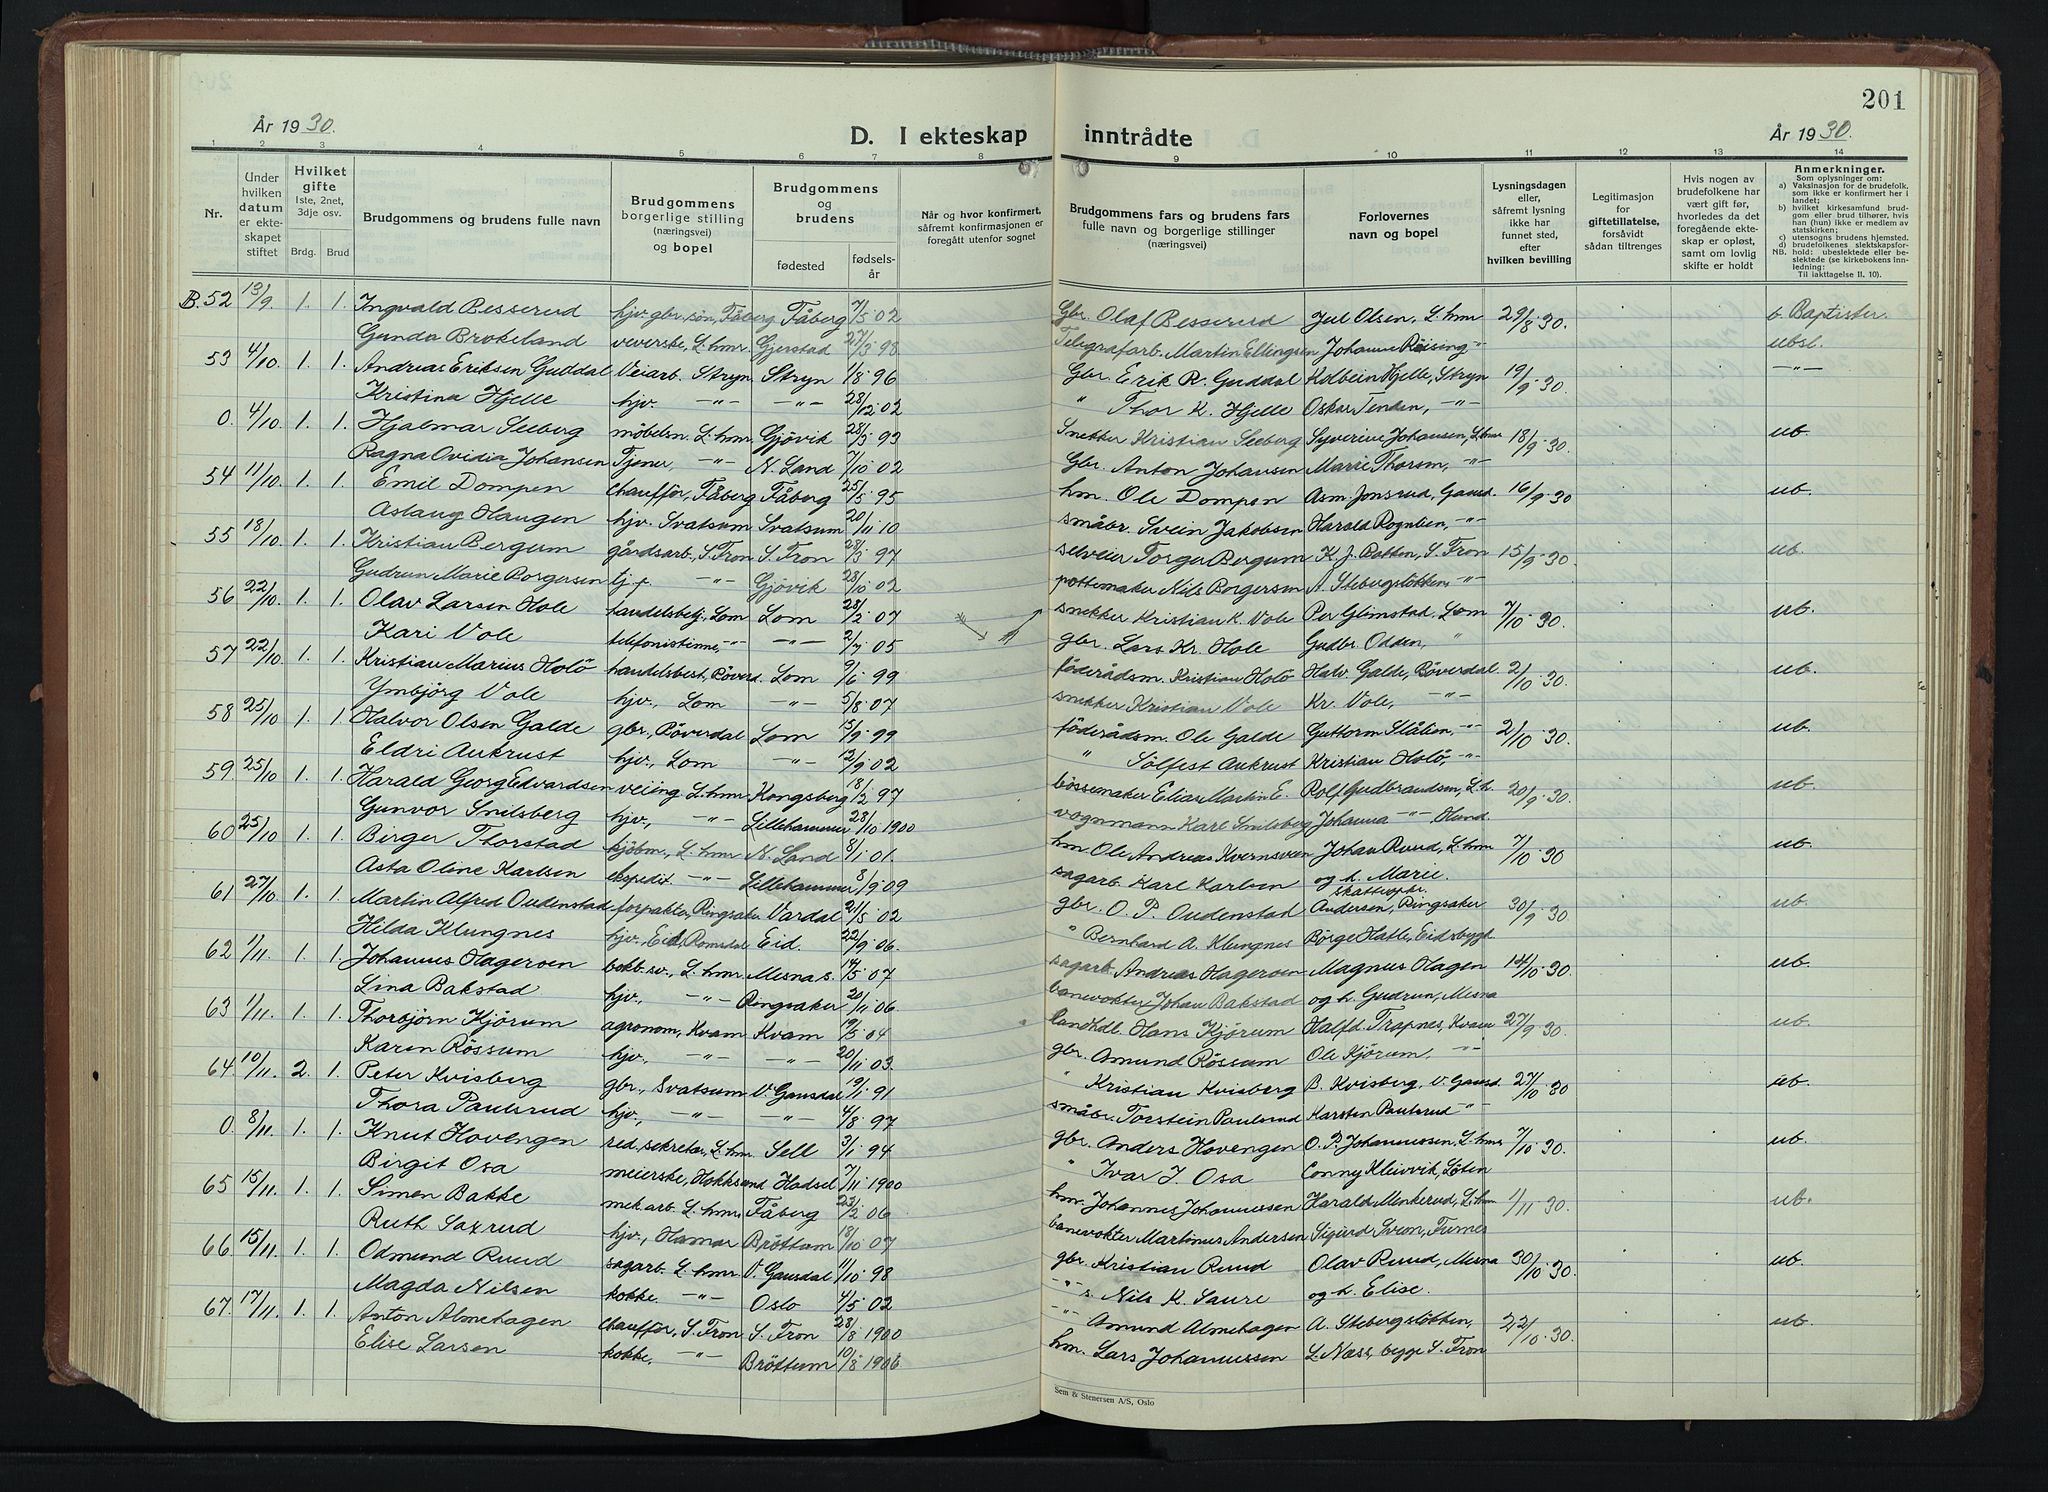 201
År 1930.
D. I ekteskap inntrådte
År 1930.
1 2 3 4 5 6 7 8 9 10 11 12 13 14
Nr.
Under hvilken datum er ekteskapet stiftet
Hvilket gifte 1ste, 2net, 3dje osv.
Brdg. Brud
Brudgommens og brudens fulle navn
Brudgommens borgerlige stilling (næringsvei) og bopel
Brudgommens og brudens
fødested
fødselsår
Når og hvor konfirmert, såfremt konfirmasjonen er foregått utenfor sognet
Brudgommens fars og brudens fars fulle navn og borgerlige stillinger (næringsvei)
Forlovernes navn og bopel
Lysningsdagen eller, såfremt lysning ikke har funnet sted, efter hvilken bevilling
Legitimasjon for giftetillatelse, forsåvidt sådan tiltrenges
Hvis nogen av brudefolkene har vært gift før, hvorledes da det foregående ekteskap er opløst, samt om lovlig skifte er holdt
Anmerkninger.
Som oplysninger om:
a) Vaksinasjon for de brudefolk, som ikke er konfirmert her i landet;
b) hvilket kirkesamfund brudgom eller brud tilhører, hvis han (hun) ikke er medlem av statskirken;
c) utensogns brudens hjemsted.
d) brudefolkenes slektskapsforhold: ubeslektede eller beslektede (se kirkebokens innledning: Til iakttagelse II. 10).
NB.
B. 52 13/9. 1. 1. Ingvald Besserud hjv. gbr. sön, Fåberg Fåberg 7/5 02 Gbr. Olaf Besserud Jul Olsen, L.hmr 29/8 30. b. Baptister.
Gunda Brokeland veverske, L.hmr. Gjerstad 27/3 98 Telegrafarb. Martin Ellingsen Johanne Röising " ubsl.
53 4/10. 1. 1. Andreas Eriksen Guddal Veiarb. Stryn Stryn 1/8 96 Gbr. Erik R. Guddal Kolbein Hjelle, Stryn 19/9 30 —"—
Kristina Hjelle hjv. —"— —"— 28/12 02 " Thor K. Hjelle Oskar Tenden, —"—
0. 4/10. 1. 1. Hjalmar Seeberg möbelsn. L.hmr. Gjövik 28/3 92 Snekker Kristian Seeberg Syverine Johansen, L.hmr 18/9 30. ub.
Ragna Ovidia Johansen Tjener, —"— N. Land 7/10 02 Gbr. Anton Johansen Marie Thorsen, —"—
54 11/10. 1. 1. Emil Dompen chaufför, Fåberg Fåberg 25/5 95 hm. Ole Dompen Asm. Jonsrud, Gausd. 16/9 30 ub.
Aslaug Haugen hjv. Svatsum Svatsum 20/11 10 småbr. Svein Jakobsen Harald Rognlien, —"—
55 18/10. 1. 1. Kristian Bergum gårdsarb, S. Fron S. Fron 28/3 97 selveier Torger Bergum K. J. Batten, S. Fron 15/9 30. ub.
Gudrun Marie Borgersen tj.p. —"— Gjövik 28/10 02 pottemaker Nils Borgersen A. Stebergslökken —"—
56 22/10. 1. 1. Olav Larsen Hole handelsbetj. Lom Lom 28/2 07 snekker Kristian K. Vole Per Glimstad, Lom 7/10 30. ub.
Kari Vole telefonistinne, —"— —"— 2/7 05 gbr. Lars Kr. Hole Gudbr. Odden, "
57 22/10. 1. 1. Kristian Marius Holö handelsbest, Böverd. Lom 9/6 99 föderådsm. Kristian Holö Halv. Galde, Böverdal 2/10 30. ub.
Ymbjörg Vole hjv., Lom —"— 5/8 07 snekker Kristian Vole Kr. Vole, —"—
58 25/10 1. 1. Halvor Olsen Galde gbr., Böverdal Lom 15/9 99 föderådsm. Ole Galde Guttorm Slålien, —"— 2/10 30. ub.
Eldri Aukrust hjv., Lom —"— 12/9 02 " Sölfest Aukrust Kristian Holö, —"—
59 25/10 1. 1. Harald Georg Edvardsen veiing. L.hmr. Kongsberg 18/2 97 bössemaker Elias Martin E. Rolf Gudbrandsen, L.h. 20/9 30. ub.
Gunvor Snilsberg hjv., —"— Lillehammer 28/10 1900 vognmann Karl Snilsberg Johanna —"— Hund
60 25/10 1. 1. Berger Thorstad kjöbm., L.hmr N. Land 8/1 01. hm. Ole Andreas Kvernsveen Johan Ruud, L.hmr 7/10 30 ub.
Asta Oline Karlsen ekspedit. —"— Lillehammer 8/9 09 sagarb. Karl Karlsen og h. Marie.
61 27/10. 1. 1. Martin Alfred Oudenstad forpakter, Ringsaker Vardal 21/5 02 gbr. O. P. Oudenstad skatteopkr. Andersen, Ringsaker 30/9 30. ub.
Hilda Klungnes hjv., Eid, Romsdal Eid. 22/9 06. " Bernhard A. Klungnes Börge Hatle, Eidsbygd
62 1/11. 1. 1. Johannes Hageroen bokb.sv., L.hmr. Mesna s. 14/5 07 sagarb. Andreas Hageroen Magnus Hagen 14/10 30. ub.
Lina Bakstad hjv., —"— Ringsaker 20/11 06. banevokter Johan Bakstad og h. Gudrun, Mesna
63 1/11. 1. 1. Thorbjörn Kjörum agronom, Kvam Kvam 19/5 04 landhdl. Hans Kjörum Halfd. Trapnes, Kvam 27/9 30. ub.
Karen Rössum hjv., —"— —"— 20/11 03. gbr. Amund Rössum Ole Kjörum, —"—
64 10/11. 2. 1. Peter Kvisberg gbr., Svatsum V. Gausdal 19/1 91 " Kristian Kvisberg B. Kvisberg, V. Gausd. 27/10 30 ub.
Thora Paulsrud hjv., —"— —"— 4/8 97 småbr. Torstein Paulsrud Karsten Paulsrud —"—
0. 8/11. 1. 1. Knut Hovengen red. sekretær, L.hmr. Sell 3/1 94 gbr. Anders Hovengen O. P. Johannessen, L.hmr 7/10 30. ub.
Birgit Osa meierske, Hokksund Hadsel 7/11 1900 " Ivar J. Osa Conny Kleivvik, Löten
65 15/11. 1. 1. Simen Bakke mek.arb. L.hmr. Fåberg 23/2 06 hm. Johannes Johannessen Harald Menkerud, L.hmr 1/11 30. ub.
Ruth Saxrud hjv., Hamar Bröttum 18/10 07 banevokter Martinus Andersen Sigurd Sveen, Furnes
66 15/11. 1. 1. Odmund Ruud sagarb. L.hmr V. Gausdal 11/10 98 gbr. Kristian Ruud Olav Ruud, Mesna 30/10 30. ub
Magda Nilsen kokke. —"— Oslo 4/5 02 —"— s. Nils K. Saure og h. Elise.
67. 17/11. 1. 1. Anton Almehagen chaufför, S. Fron S. Fron 28/8 1900 —"— Amund Almehagen A. Stebergslökken, 22/10 30. ub.
Elise Larsen kokke, —"— Bröttum 10/8 1906 hm. Lars Johannessen L. Næss, begge S. Fron
Sem & Stenersen A/S, Oslo